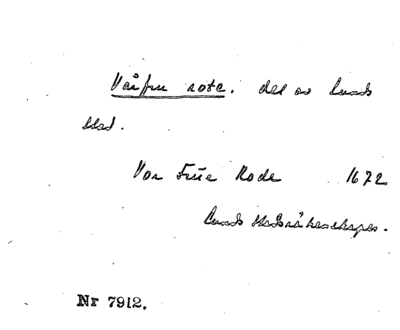 Vårfru rote. del av Lunds
stad.
Vor Frûe Rode 1672
Lunds stadsräkenskaper.
Nr 7912.